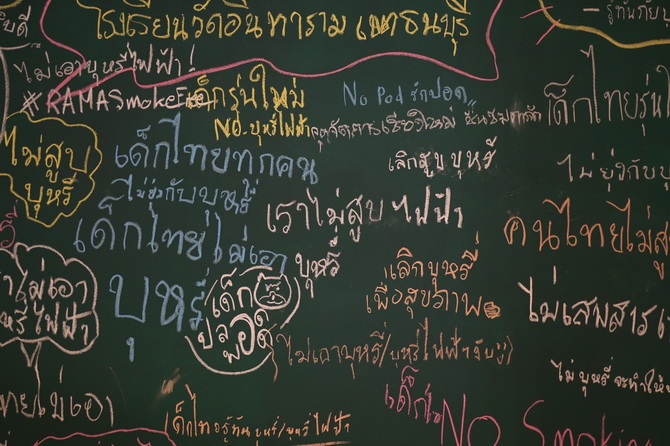 โรงเรียนวัดอินทาราม เขตธนบุรี
ไม่เอาบุหรี่ไฟฟ้า!
#RAMASmokeFree
เด็กรุ่นใหม่
NO บุหรี่ไฟฟ้า
No Pod รักปอด
เลิกสูบบุหรี่
ไม่สูบ
บุหรี่
เด็กไทยทุกคน
ไม่ยุ่งกับบุหรี่
เราไม่สูบไฟฟ้า
บุหรี่
เด็กไทยไม่เอา
บุหรี่
เด็ก
ปลอด
เลิกบุหรี่
เพื่อสุขภาพ
ไม่เอาบุหรี่/บุหรี่ไฟฟ้า
เด็กไทยรู้ทันบุหรี่/บุหรี่ไฟฟ้า
เด็กไทยรุ่น
ไม่ยุ่งกับบุ
คนไทยไม่สู
ไม่เสพสาร
ไม่บุหรี่จะทำให้
ไม่เอา
หรี่ไฟฟ้า
ไทยไม่เอา
NO Smoking